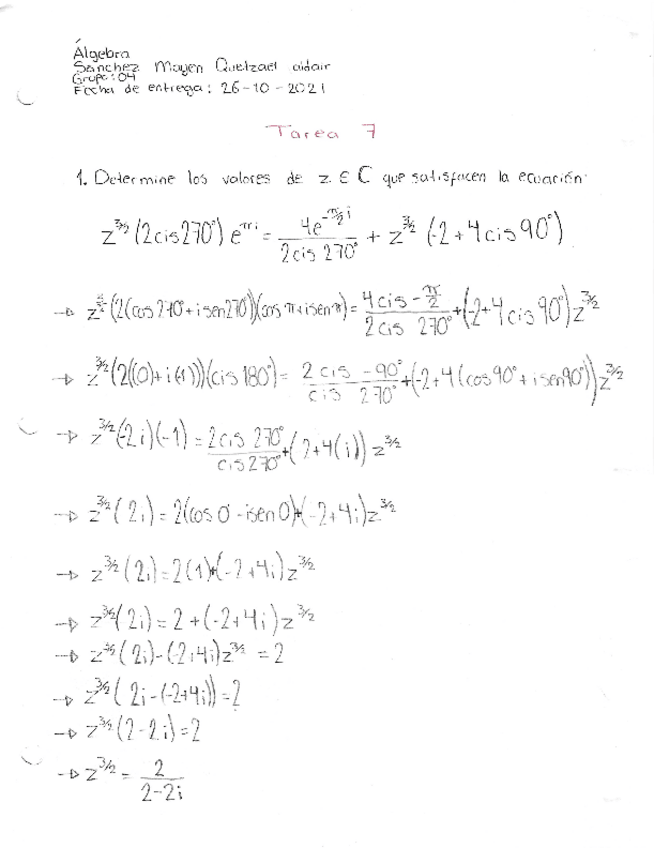 Álgebra
Sánchez Mayen Quetzael aidair
Grupo: 04
Fecha de entrega: 26-10-2021
Tarea 7
1. Determine los valores de z ∈ C que satisfacen la ecuación:
z^{3/2} (2cis270°) e^{πi} = \frac{4e^{-π/2 i}}{2cis 270°} + z^{3/2} (-2+4cis90°)
→ z^{3/2} (2(cos270°+isen270°))(cosπ+isenπ) = \frac{4cis -π/2}{2cis 270°} + (-2+4cis90°)z^{3/2}
→ z^{3/2} (2((0)+i(-1)))(cis180°) = \frac{2cis -90°}{cis 270°} + (-2+4(cos90°+isen90°))z^{3/2}
→ z^{3/2} (-2i)(-1) = \frac{2cis 270°}{cis270°} + (-2+4(i)) z^{3/2}
→ z^{3/2} (2i) = 2(cos0-isen0)+(-2+4i)z^{3/2}
→ z^{3/2} (2i) = 2(1)+(-2+4i)z^{3/2}
→ z^{3/2} (2i) = 2+(-2+4i)z^{3/2}
→ z^{3/2} (2i)-(-2+4i)z^{3/2} = 2
→ z^{3/2} (2i-(-2+4i)) = 2
→ z^{3/2} (2-2i) = 2
→ z^{3/2} = \frac{2}{2-2i}